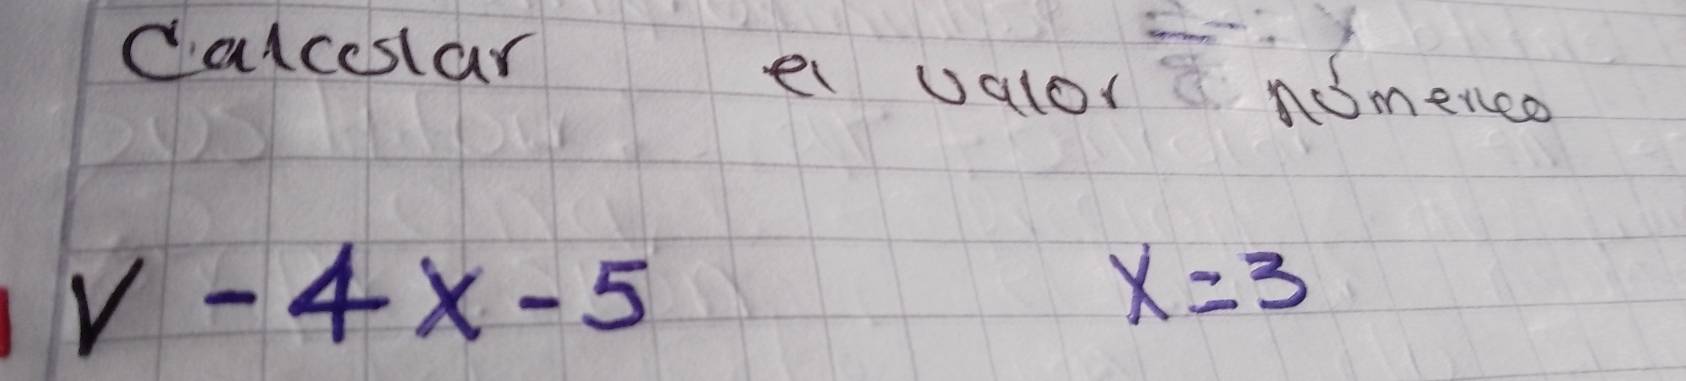 Calcular el valor númerico
V - 4x - 5 x = 3